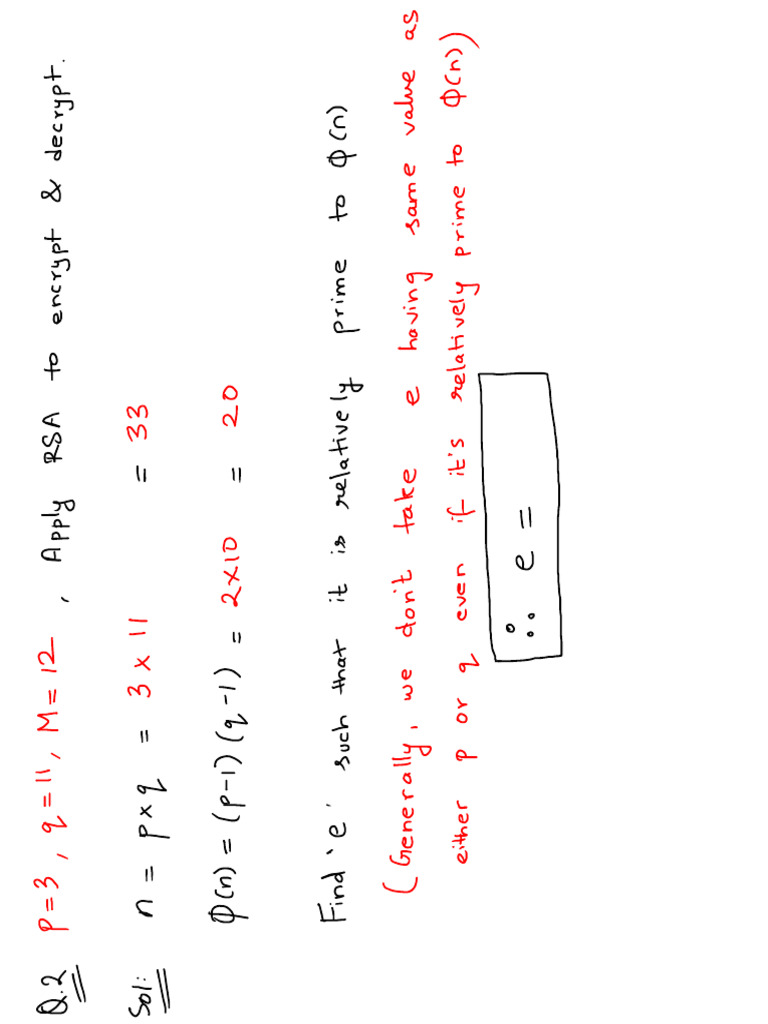 Q.2 P=3, q=11, M=12, Apply RSA to encrypt & decrypt.
Sol: n = p×q = 3×11 = 33
Φ(n) = (p-1)(q-1) = 2×10 = 20
Find 'e' such that it is relatively prime to Φ(n)
(Generally, we don't take e having same value as
either p or q even if it's relatively prime to Φ(n))
∴ e =